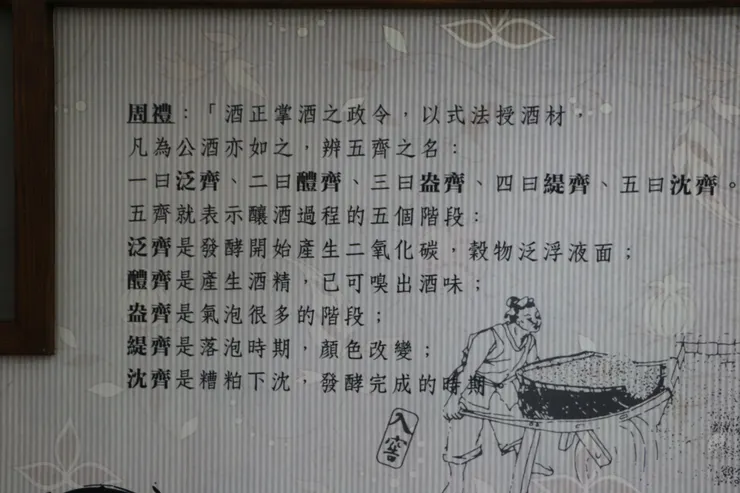 周禮：「酒正掌酒之政令，以式法授酒材，
凡為公酒亦如之，辨五齊之名：
一曰泛齊、二曰醴齊、三曰盎齊、四曰緹齊、五曰沈齊。
五齊就表示釀酒過程的五個階段：
泛齊是發酵開始產生二氧化碳，穀物泛浮液面；
醴齊是產生酒精，已可嗅出酒味；
盎齊是氣泡很多的階段；
緹齊是落泡時期，顏色改變；
沈齊是糟粕下沈，發酵完成的時期
入窖